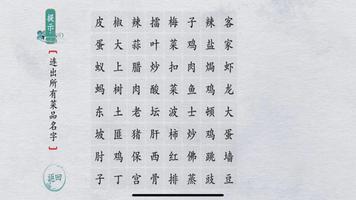 提示
连出所有菜品名字
返回
皮椒辣擂梅子辣客
蛋大蒜叶菜鸡盐家
蚁上蒜肉扣鸡焗虾
蚂树彤酸菜鸡虾龙
东土老坡波士顿大
坡匪猪肚柿炒鸡蛋
肘鸡保西红佛跳墙
子丁宫骨排蒸豉豆